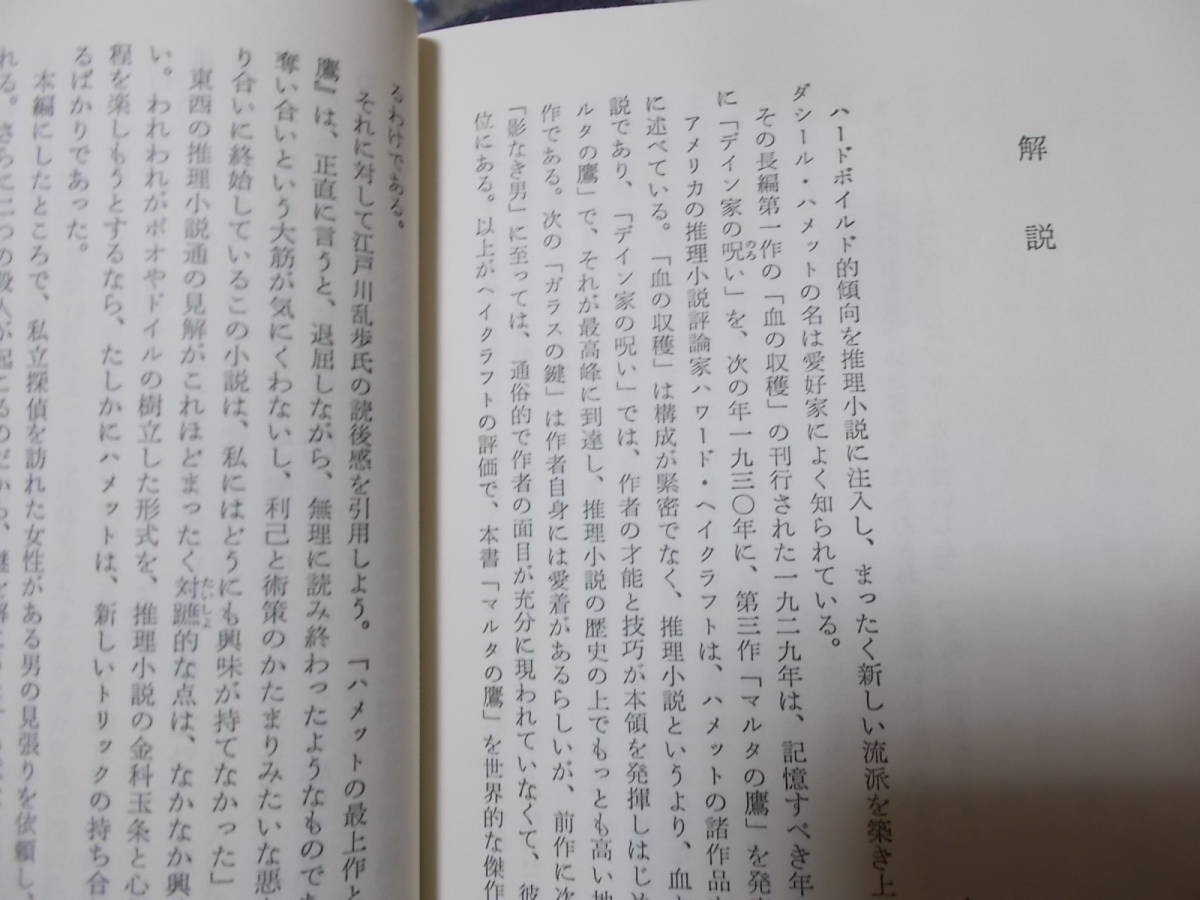 解説
ハードボイルド的傾向を推理小説に注入し、まったく新しい流派を築き上
ダシール・ハメットの名は愛好家によく知られている。
その長編第一作の「血の収穫」の刊行された一九二九年は、記憶すべき年
に「デイン家の呪い」を、次の年一九三〇年に、第三作「マルタの鷹」を発
アメリカの推理小説評論家ハワード・ヘイクラフトは、ハメットの諸作品
に述べている。「血の収穫」は構成が緊密でなく、推理小説というより、血
説であり、「デイン家の呪い」では、作者の才能と技巧が本領を発揮しはじめ
ルタの鷹」で、それが最高峰に到達し、推理小説の歴史の上でもっとも高い地
作である。次の「ガラスの鍵」は作者自身には愛着があるらしいが、前作に次
「影なき男」に至っては、通俗的で作者の面目が充分に現われていなくて、彼
位にある。以上がヘイクラフトの評価で、本書「マルタの鷹」を世界的な傑作
るわけである。
それに対して江戸川乱歩氏の読後感を引用しよう。「ハメットの最上作と
鷹』は、正直に言うと、退屈しながら、無理に読み終わったようなものであ
奪い合いという大筋が気にくわないし、利己と術策のかたまりみたいな悪
り合いに終始しているこの小説は、私にはどうにも興味が持てなかった」
東西の推理小説通の見解がこれほどまったく対蹠的な点は、なかなか興
い。われわれがポオやドイルの樹立した形式を、推理小説の金科玉条と心
程を楽しもうとするなら、たしかにハメットは、新しいトリックの持ち合
るばかりであった。
本編にしたところで、私立探偵を訪れた女性がある男の見張りを依頼し、
れる。さらに二つの殺人が起こるのだから、謎を解